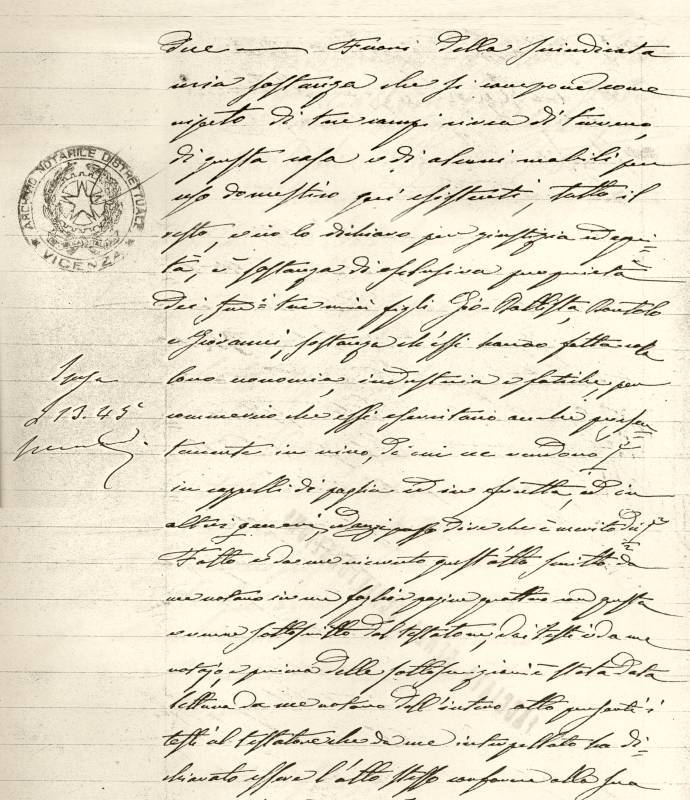 due — Fuori della suindicata
mia sostanza che si compone come
ripeto di tre campi circa di terreno,
di questa casa e di alcuni mobili per
uso domestico qui esistenti, tutto il
resto, e cio lo dichiaro per giustizia ed equi-
tà, è sostanza di esclusiva proprietà
dei tre miei figli Gio. Battista, Bortolo
e Giovanni, sostanza ch'essi hanno fatta colla
loro economia, industria e fatiche, per
commercio che essi esercitano anche presen-
temente in vino, di cui ne vendono
in cappelli di paglia ed in frutta, ed in
altri generi, posso dire che è merito
Fatto e da me ricevuto quest'atto scritto da
me notaro in un foglio pagine quattro con questa
e viene sottoscritto dal testatore, dai testi e da me
notajo, e prima delle sottoscrizioni è stata data
lettura da me notaro dell'intero atto presenti i
testi al testatore che da me interpellato ha di-
chiarato essere l'atto stesso conforme alla sua
ARCHIVIO NOTARILE DISTRETTUALE
VICENZA
13.45